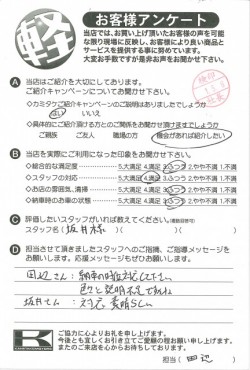 軽
お客様アンケート
当店では、お買い上げ頂いたお客様の声を可能
な限り現場に反映し、お客様により良い商品と
サービスを提供する事に努めています。
大変お手数ですが是非お声をお聞かせ下さい。
A 当店はご紹介を大切にしております。
ご紹介キャンペーンについてお聞かせ下さい。
◇カミタケご紹介キャンペーンのご説明はありましたでしょうか
はい いいえ
◇具体的にご紹介頂ける方とのご関係をお聞かせ頂けますでしょうか
ご親族 ご友人 職場の方 機会があれば紹介したい
B 当店を実際にご利用になった印象をお聞かせ下さい。
◇総合的な満足度 5.大満足 4.満足 3.ふつう 2.やや不満 1.不満
◇スタッフの対応 5.大満足 4.満足 3.ふつう 2.やや不満 1.不満
◇お店の雰囲気、清掃 5.大満足 4.満足 3.ふつう 2.やや不満 1.不満
◇納車時のお車の状態 5.大満足 4.満足 3.ふつう 2.やや不満 1.不満
C 評価したいスタッフがいれば教えてください。
スタッフ名( 坂井様 )
D 担当させて頂きましたスタッフへのご指摘、ご指導メッセージを
お願いします。応援メッセージもお願いします。
田辺さん：納車の時
説明不足
坂井さん：対応 素晴らしい
K
ご協力に心よりお礼を申し上げます。
今後とも宜しくお引き立てご愛顧の程お願い申し上げます。
またのご来店を心からお待ちしております。
担当( 田辺 )